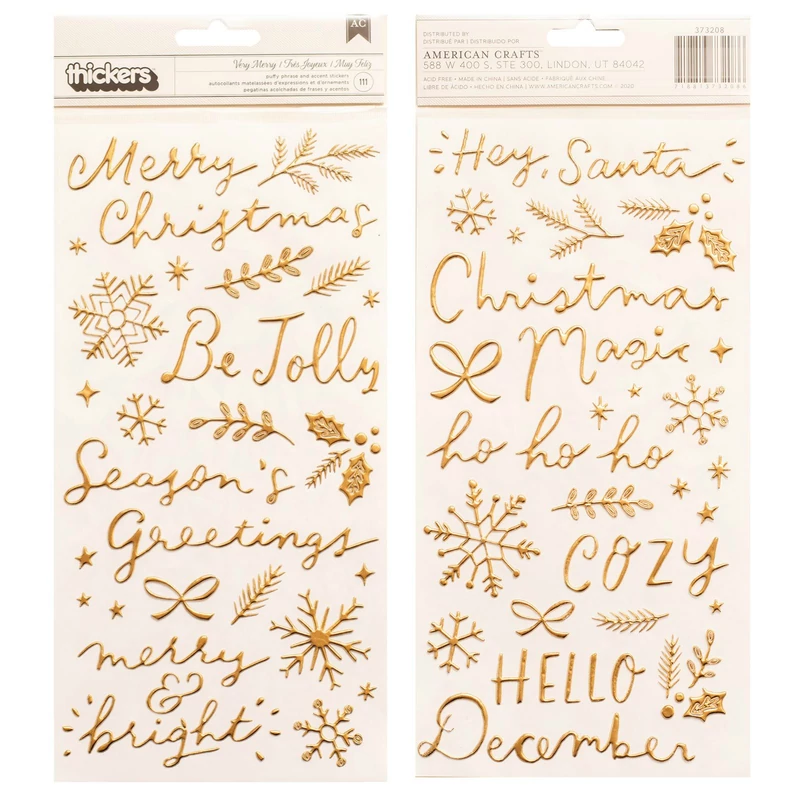 AC
thickers
Very Merry / Très Joyeux / Muy Feliz
puffy phrase and accent stickers
autocollants matelassées d'expressions et d'ornements
pegatinas acolchadas de frases y acentos
111
Merry
Christmas
Be Jolly
Season's
Greetings
merry
&
bright
DISTRIBUTED BY
DISTRIBUÉ PAR | DISTRIBUIDO POR
AMERICAN CRAFTS
588 W 400 S, STE 300, LINDON, UT 84042
ACID FREE • MADE IN CHINA | SANS ACIDE • FABRIQUÉ AUX CHINE
LIBRE DE ÁCIDO • HECHO EN CHINA | WWW.AMERICANCRAFTS.COM © 2020
373208
Hey, Santa
Christmas
Magic
ho ho ho
COZY
HELLO
December